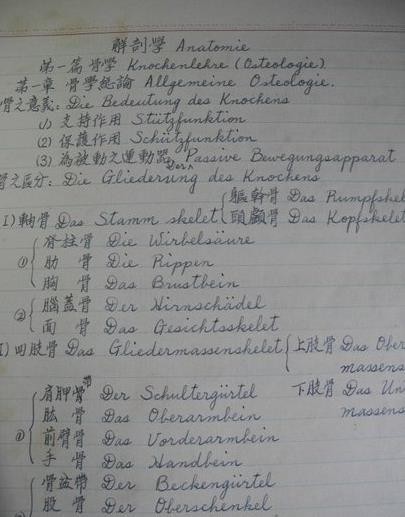 解剖學 Anatomie
第一篇 骨學 Knochenlehre (Osteologie)
第一章 骨學總論 Allgemeine Osteologie.
骨之意義: Die Bedeutung des Knochens
(1) 支持作用 Stützfunktion
(2) 保護作用 Schützfunktion
(3) 為被動之運動器 Der Passive Bewegungsapparat
骨之區分: Die Gliederung des Knochens
I) 軸骨 Das Stamm skelet { 軀幹骨 Das Rumpfskel
頭顱骨 Das Kopfskelet
① { 脊柱骨 Die Wirbelsäure
肋 骨 Die Rippen
胸 骨 Das Brustbein
② { 腦蓋骨 Der Hirnschädel
面 骨 Das Gesichtsskelet
I) 四肢骨 Das Gliedermassenskelet { 上肢骨 Das Ober
massens
下肢骨 Das Un
massens
① { 肩胛骨帶 Der Schultergürtel
肱 骨 Das Oberarmbein
前臂骨 Das Vorderarmbein
手 骨 Das Handbein
{ 骨盆帶 Der Beckengürtel
股 骨 Der Oberschenkel